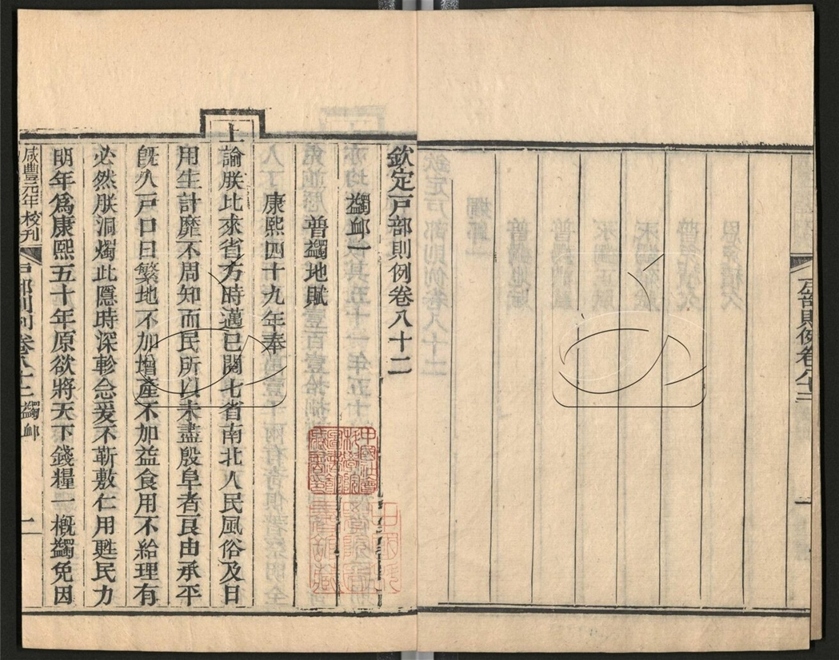 戸部則例卷八十二
一
欽定戸部則例卷八十二
蠲卹一
普蠲地賦
康熙四十九年奉
上諭朕比來省方時邁已閱七省南北人民風俗及日
用生計靡不周知而民所以未盡殷阜者良由承平
既久戸口日繁地不加增產不加益食用不給理有
必然朕洞燭此隱時深軫念爰不靳敷仁用甦民力
明年爲康熙五十年原欲將天下錢糧一槪蠲免因
咸豐元年校刊
戸部則例卷八十二
蠲卹
二